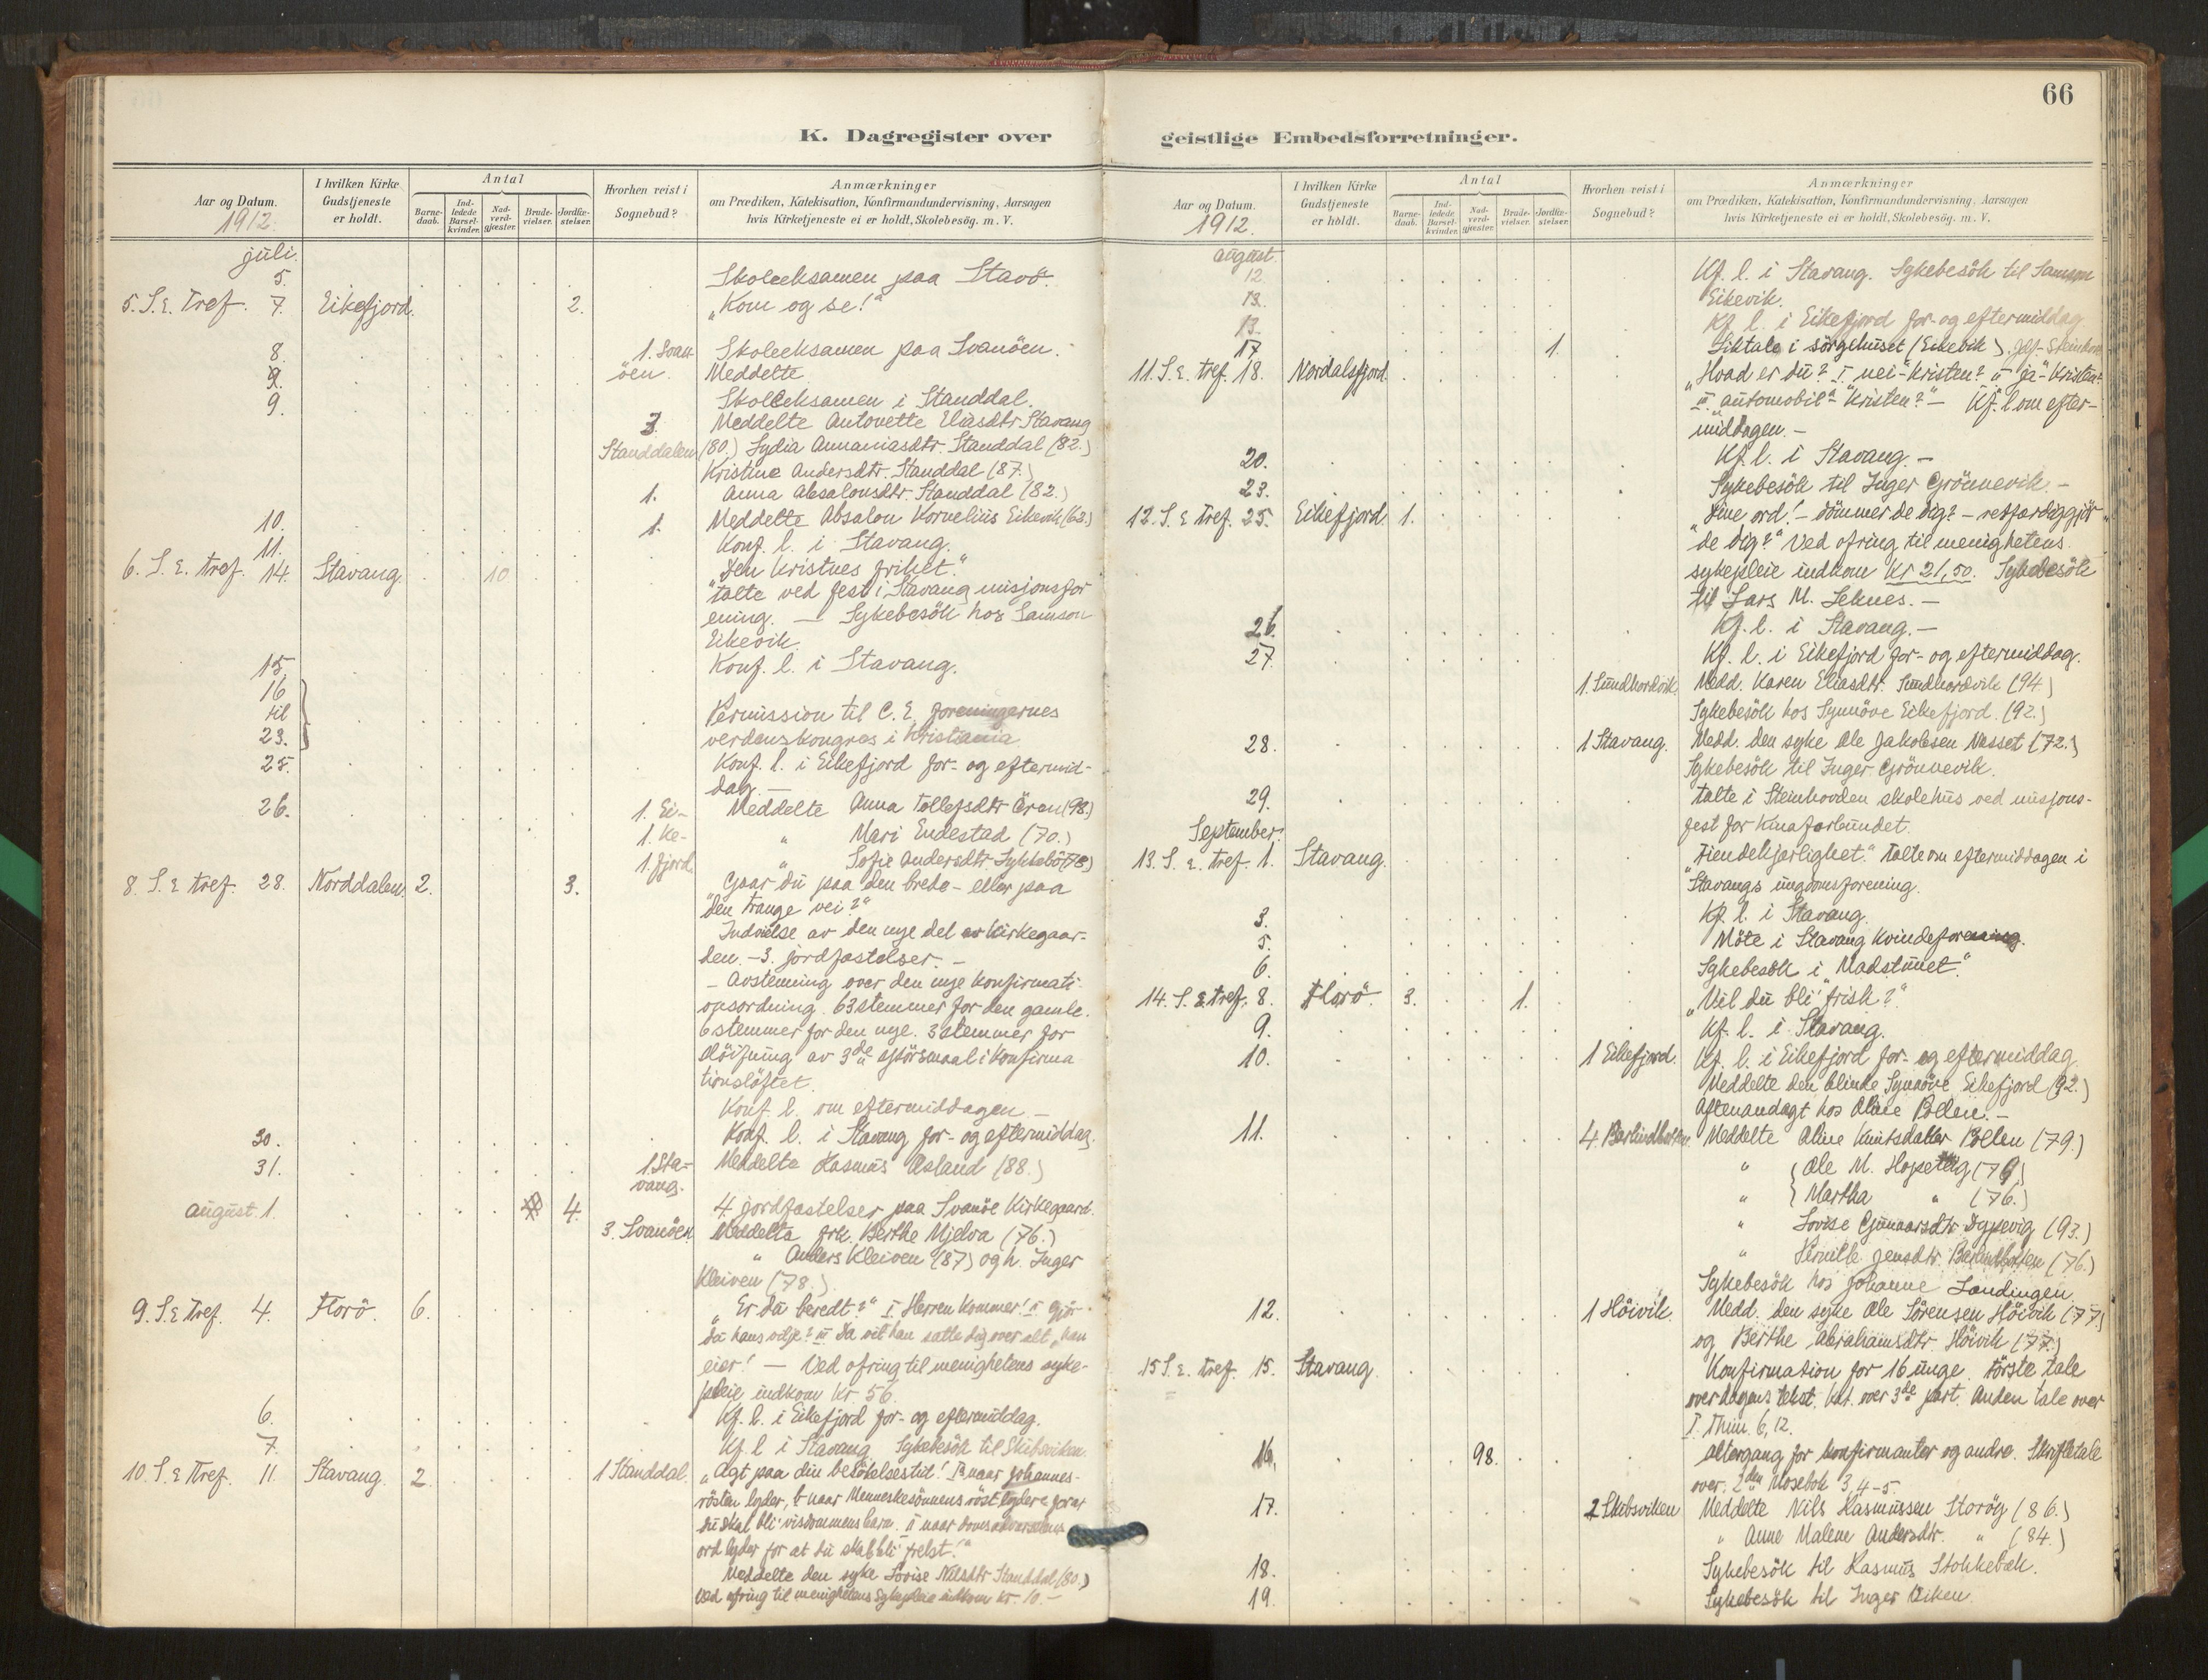 66
K. Dagregister over
geistlige Embedsforretninger.
Aar og Datum.
1912.
I hvilken Kirke Gudstjeneste er holdt.
Antal
Barne-daab.
Ind-ledede Barsel-kvinder.
Nad-verd-gjæster.
Brude-vielser.
Jordfæ-stelser.
Hvorhen reist i Sognebud?
Anmærkninger
om Prædiken, Katekisation, Konfirmandundervisning, Aarsagen
hvis Kirketjeneste ei er holdt, Skolebesøg. m. V.
juli.
5. Skoleeksamen paa Stavö.
5. S. E. Tref. 7. Eikefjord. 2. „Kom og se!"
8. 1. Svan- Skoleeksamen paa Svanöen.
9. öen. Meddelte
9. Skoleeksamen i Standdal.
3 Meddelte Antonette Eliasdtr Stavang
Standdalen (80.) Lydia Annaniasdtr. Standdal (82.)
Kristine Andersdtr. Standdal (87.)
1. Anna Absalonsdtr. Standdal (82.)
10. 1. Meddelte Absalon Kornelius Eikevik (63.)
11. Konf. l. i Stavang.
6. S. E. Tref. 14. Stavang. 10 „Den kristnes frihet."
talte ved fest i Stavang misjonsfor
ening. — Sykebesök hos Samson
Eikevik.
15. Konf. l. i Stavang.
16
til Permission til C. E. foreningernes
23. verdenskongres i Kristiania
25. Konf. l. i Eikefjord for- og eftermid-
dag. —
26. 1. Ei- Meddelte Anna Tollefsdtr (98.)
1. ke- " Mari Endestad (70.)
1. fjord. " Sofie Andersdtr (78)
8. S. E. Tref. 28. Norddalen. 2. 3. „Gaar du paa den brede - eller paa
den trange vei?"
Indvielse av den nye del av kirkegaar-
den. - 3. jordfæstelser. -
- Avstemning over den nye konfirmati-
onsordning. 63 stemmer for den gamle.
6 stemmer for den nye. 3 stemmer for
av 3de spörsmaal i konfirma
tionslöftet.
Konf. l. om eftermiddagen —
30. Konf. l. i Stavang for- og eftermiddag.
31. 1 Sta- Meddelte Rasmus Osland (88.)
vang.
august. 1. 4. 4 jordfæstelser paa Svanöe Kirkegaard.
3. Svanöen Meddelte frk. Berthe Mjelva (76.)
" Anders Kleiven (87) og h. Inger
Kleiven (78.)
9. S. E. Tref. 4. Florö. 6. „Er du beredt?" I Herren kommer! II Gjör
du hans vilje? III Da vil han sætte dig over alt han
eier! — Ved ofring til menighetens syke-
pleie indkom kr 56.
6. Kf. l. i Eikefjord for- og eftermiddag.
7. Kf. l. i Stavang. Sykebesök til Skibsviken.
10. S. E. Tref. 11. Stavang. 2 1 Standdal. „Agt paa din besökelsestid! I naar Johannes-
rösten lyder, naar Menneskesönnens röst lyder for at
du skal bli visdommens barn. II naar
ord lyder for at du skal bli frelst!"
Meddelte den syke Lovise Nilsdtr Standdal (80.)
Ved ofring til menighetens Sykepleie indkom kr. 10.-
Aar og Datum.
1912.
I hvilken Kirke Gudstjeneste er holdt.
Antal
Barne-daab.
Ind-ledede Barsel-kvinder.
Nad-verd-gjæster.
Brude-vielser.
Jordfæ-stelser.
Hvorhen reist i Sognebud?
Anmærkninger
om Prædiken, Katekisation, Konfirmandundervisning, Aarsagen
hvis Kirketjeneste ei er holdt, Skolebesøg. m. V.
august.
12. Kf. l. i Stavang. Sykebesök til Samson
13. Eikevik.
13. Kf. l. i Eikefjord for- og eftermiddag
17 1. Liktale i sörgehuset (Eikevik).
11. S. E. tref. 18. Nordalsfjord. „Hvad er du? I „nei"-kristen? II „ja"-kristen?
III „automobil"-kristen?" — Kf. l. om efter-
middagen. —
20. Kf. l. i Stavang. —
23. Sykebesök til Inger Grönnevik. —
12. S. E. Tref. 25. Eikefjord. 1. „Dine ord! - dömmer de dig? - retfærdiggjör
de dig?" Ved ofring til menighetens
sykepleie indkom kr 21,50. Sykebesök
til Lars M. Seknes. —
26. Kf. l. i Stavang. —
27. Kf. l. i Eikefjord for- og eftermiddag.
1. Sundhordvik. Medd. Karen Eliasdtr. Sundhordvik (94.)
Sykebesök hos Synnöve Eikefjord. (92.)
28. 1 Stavang. Medd. den syke Ole Jakobsen Nesset (72.)
Sykebesök til Inger Grönnevik.
29. talte i Steinhovden skolehus ved misjons-
fest for Kinaforbundet.
September.
13. S. E. tref. 1. Stavang. „Fiendekjærlighet." Talte om eftermiddagen i
Stavangs ungdomsforening.
3. Kf. l. i Stavang.
5. Möte i Stavang Kvindeforening.
6. Sykebesök i „Madstunet".
14. S. E. tref. 8. Florö. 3. 1. „Vil du bli frisk?"
9. Kf. l. i Stavang.
10. 1 Eikefjord. Kf. l. i Eikefjord for- og eftermiddag
Meddelte den blinde Synnöve Eikefjord (92.)
Aftenandagt hos Oline Pollen. —
11. 4 Meddelte Oline Knutsdatter Pollen (79.)
" Ole M. (79)
" Martha " (76.)
" Lovise Gunnarsdtr. (93.)
" Pernille Jensdtr. (76.)
Sykebesök hos Johanne Landingen.
12. 1 Höivik. Medd. den syke Ole Sörensen Höivik (77.)
og Berthe Abrahamsdtr. Höivik (77.)
15 S. E. tref. 15. Stavang. Konfirmation for 16 unge. Förste tale
over dagens tekst. Kat. over 3de part. Anden tale over
I. Thim. 6, 12.
16. 98. Altergang for konfirmanter og andre. Skriftetale
over. 2den Mosebok 3, 4-5.
17. 2 Skibsviken Meddelte Nils Rasmussen Storöy (86.)
" Anne Malene Andersdtr. " (84.)
18. Sykebesök til Rasmus Stokkebæk.
19. Sykebesök til Inger Viken.